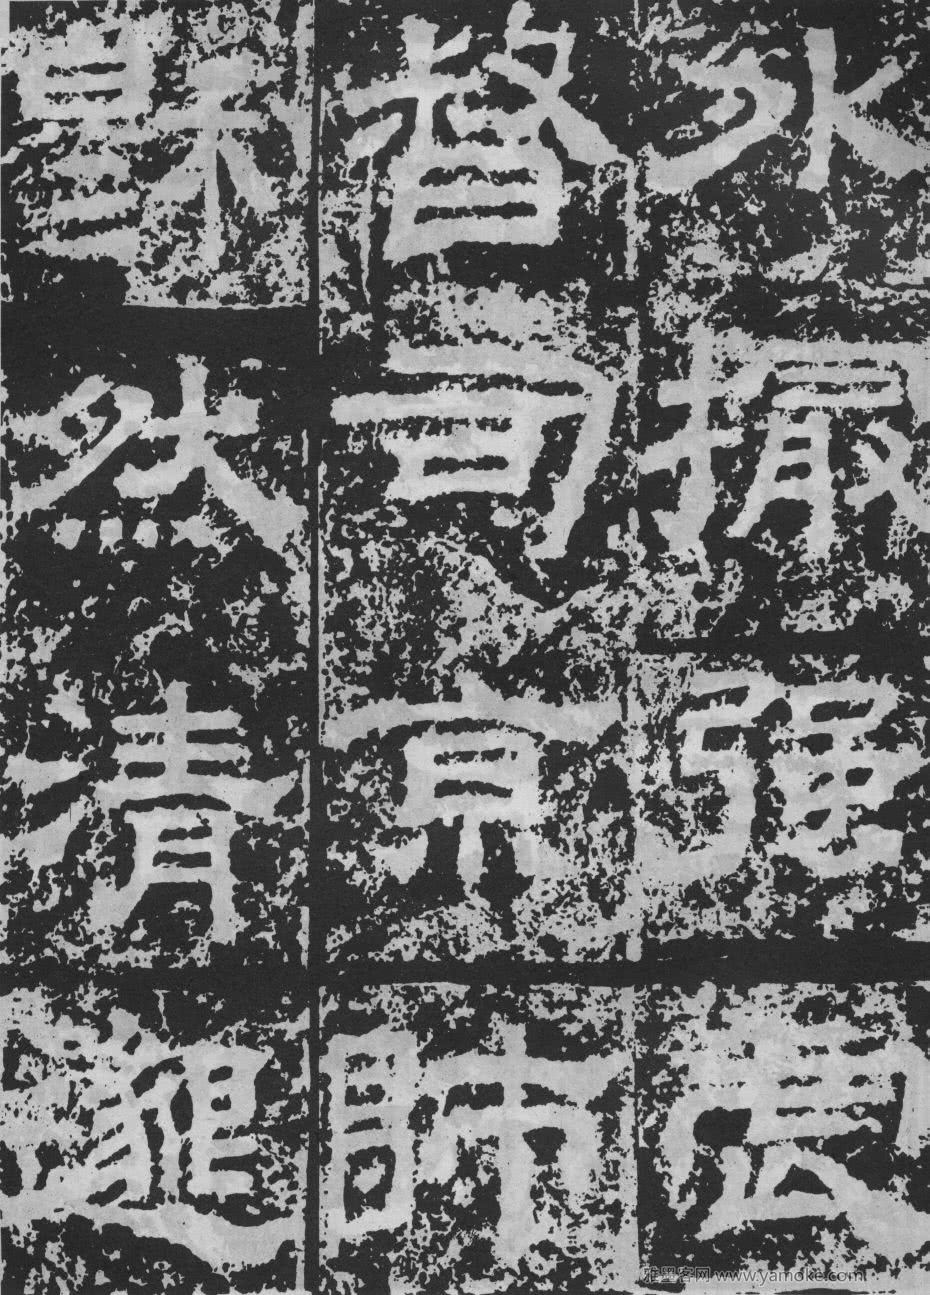 外撮强虐
督司京師
穆然清邈
雅墨客网 www.yamoke.com